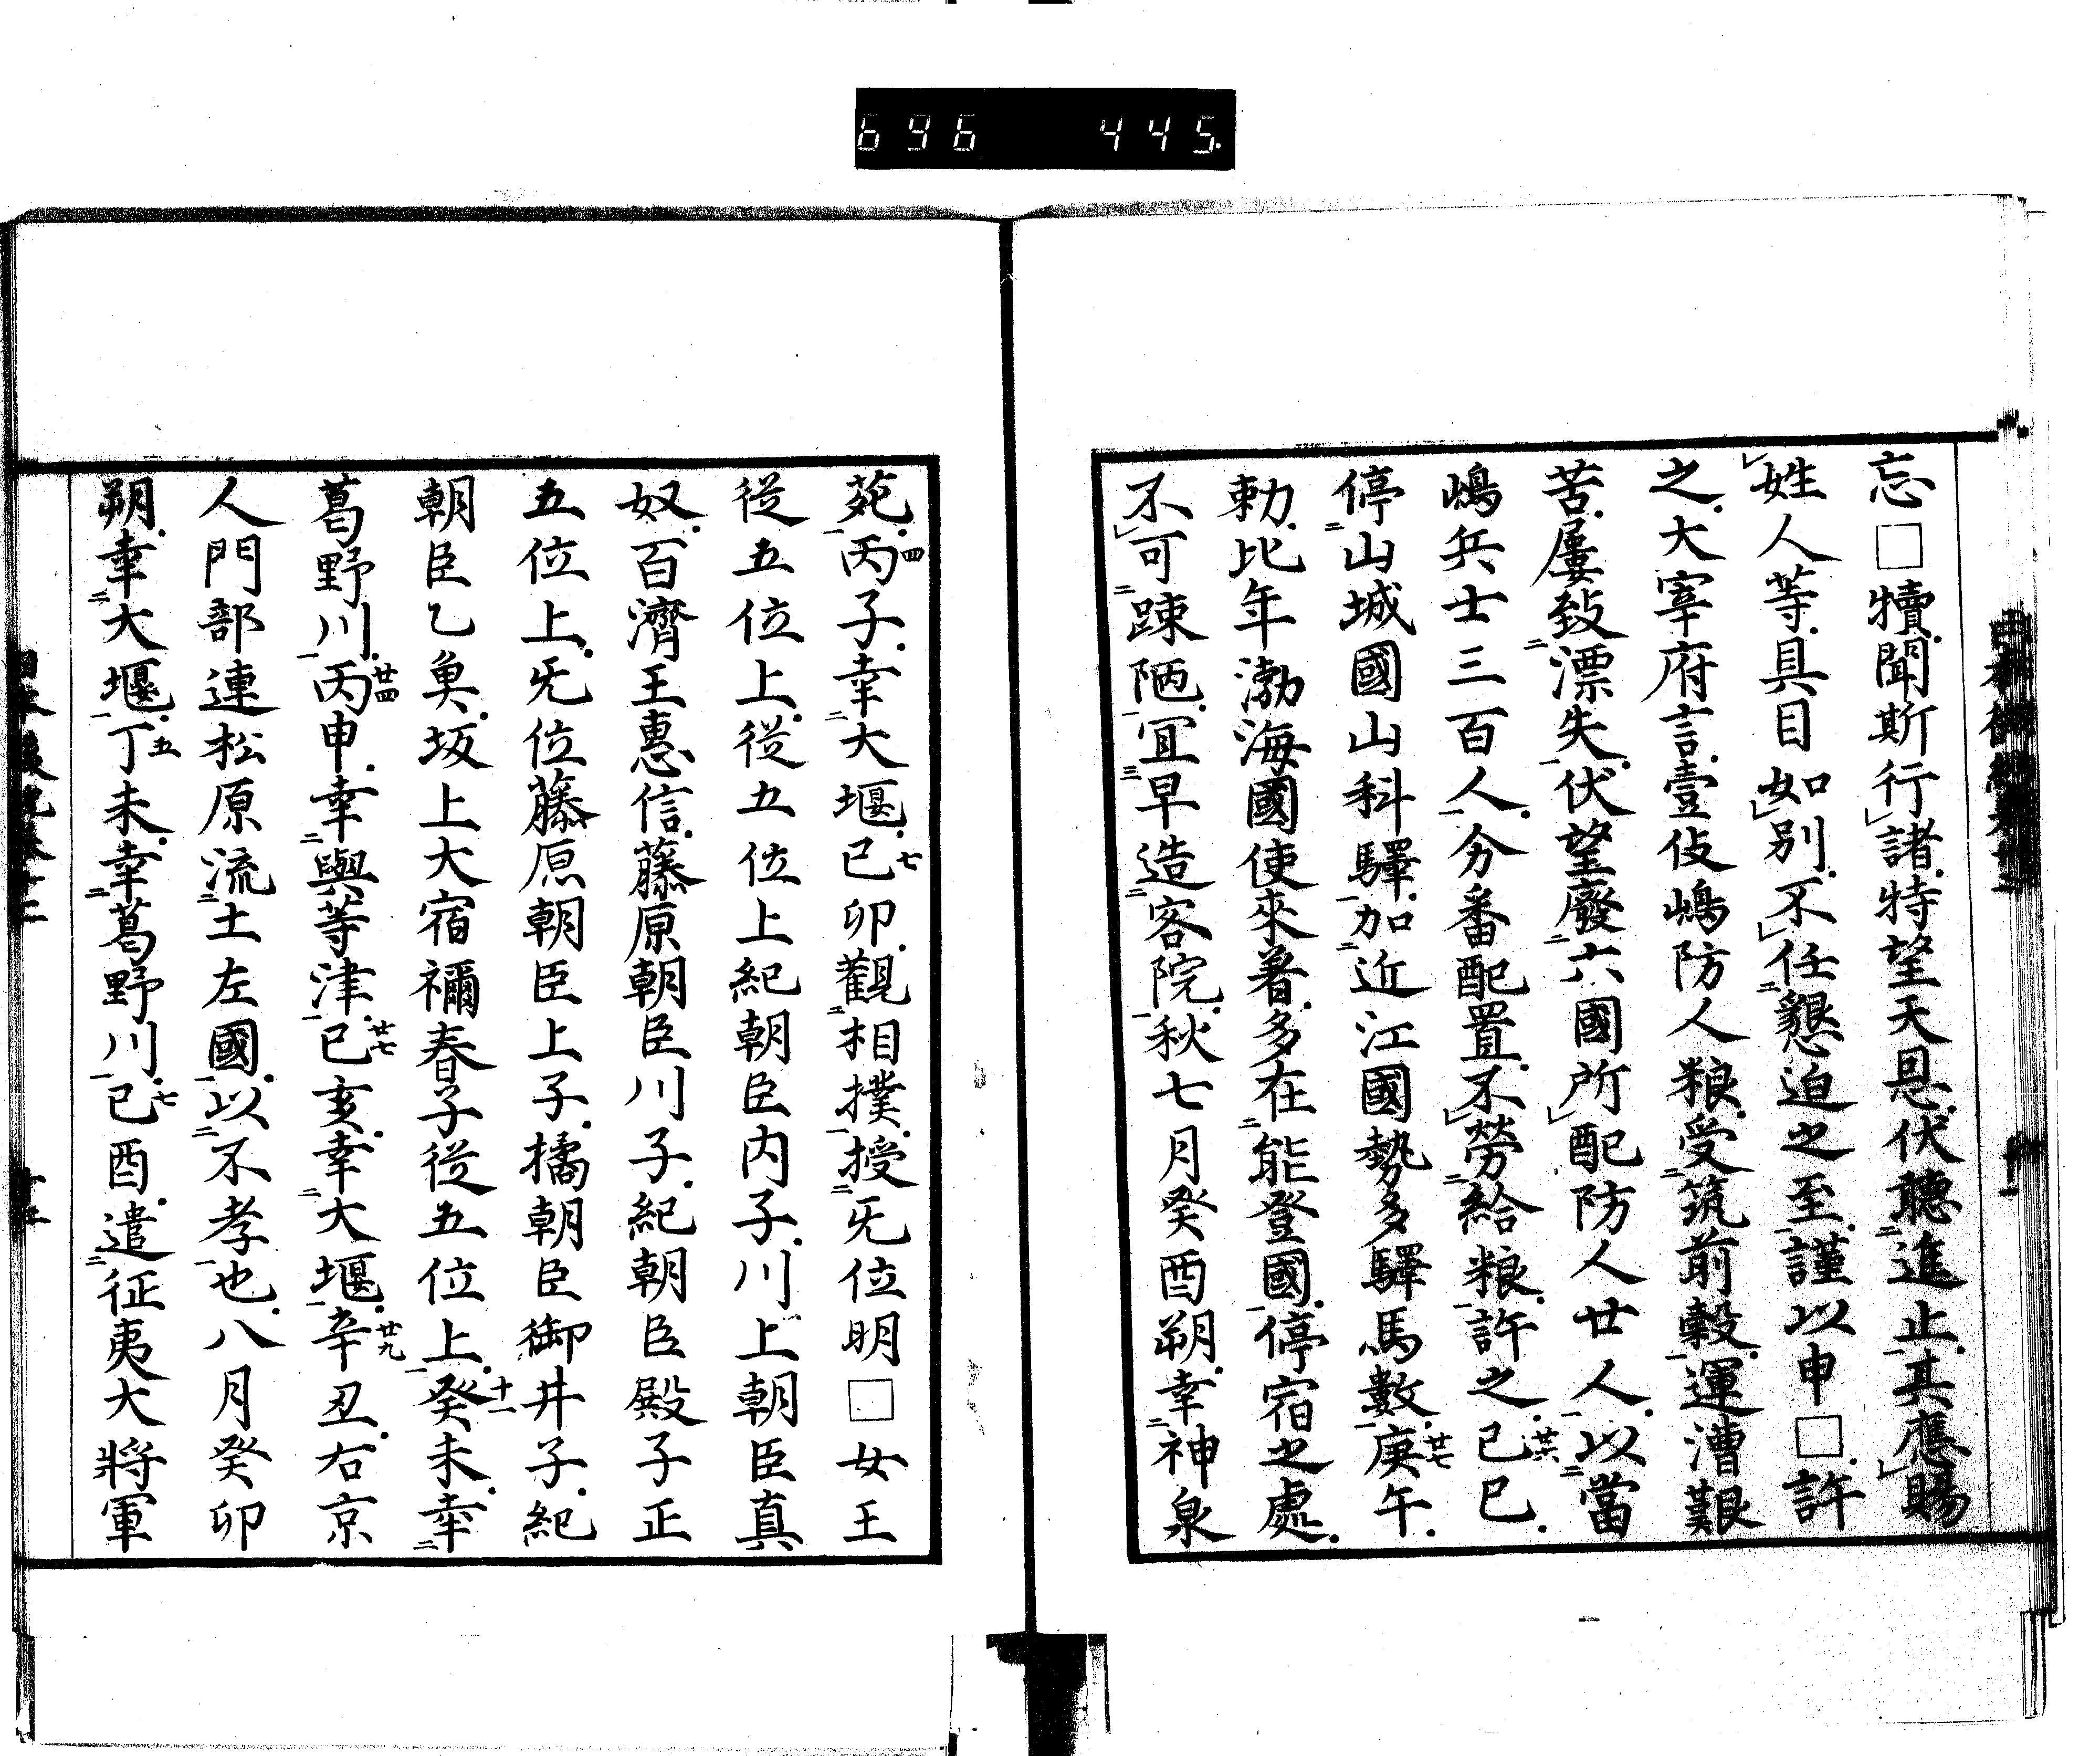 696 445.
忘□犢聞斯行諸特望天恩伏聽進止其應賜
姓人等具目如別不任懇迫之至謹以申□許
之大宰府言壹伎嶋防人粮受筑前穀運漕艱
苦屢致漂失伏望廢六國所配防人廿人以當
嶋兵士三百人分番配置不勞給粮許之己巳
停山城國山科驛加近江國勢多驛馬數庚午
勅比年渤海國使來着多在能登國停宿之處
不可踈陋宜早造客院秋七月癸酉朔幸神泉
苑丙子幸大堰己卯觀相撲授旡位明□女王
從五位上從五位上紀朝臣内子川上朝臣真
奴百濟王惠信藤原朝臣川子紀朝臣殿子正
五位上旡位藤原朝臣上子橘朝臣御井子紀
朝臣乙魚坂上大宿禰春子從五位上癸未幸
葛野川丙申幸與等津己亥幸大堰辛丑右京
人門部連松原流土左國以不孝也八月癸卯
朔幸大堰丁未幸葛野川己酉遣征夷大將軍